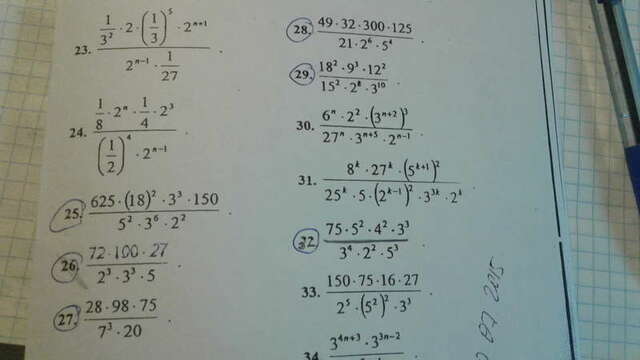 23. \frac{\frac{1}{3^2} \cdot 2 \cdot \left(\frac{1}{3}\right)^5 \cdot 2^{n+1}}{2^{n-1} \cdot \frac{1}{27}}.
24. \frac{\frac{1}{8} \cdot 2^n \cdot \frac{1}{4} \cdot 2^3}{\left(\frac{1}{2}\right)^4 \cdot 2^{n-1}}.
25. \frac{625 \cdot (18)^2 \cdot 3^3 \cdot 150}{5^2 \cdot 3^6 \cdot 2^2}.
26. \frac{72 \cdot 100 \cdot 27}{2^3 \cdot 3^3 \cdot 5}.
27. \frac{28 \cdot 98 \cdot 75}{7^3 \cdot 20}.
28. \frac{49 \cdot 32 \cdot 300 \cdot 125}{21 \cdot 2^6 \cdot 5^4}.
29. \frac{18^2 \cdot 9^3 \cdot 12^2}{15^2 \cdot 2^8 \cdot 3^{10}}.
30. \frac{6^n \cdot 2^2 \cdot (3^{n+2})^3}{27^n \cdot 3^{n+5} \cdot 2^{n-1}}.
31. \frac{8^k \cdot 27^k \cdot (5^{k+1})^2}{25^k \cdot 5 \cdot (2^{k-1})^2 \cdot 3^{3k} \cdot 2^k}.
32. \frac{75 \cdot 5^2 \cdot 4^2 \cdot 3^3}{3^4 \cdot 2^2 \cdot 5^3}.
33. \frac{150 \cdot 75 \cdot 16 \cdot 27}{2^5 \cdot (5^2)^2 \cdot 3^3}.
34. 3^{4n+3} \cdot 3^{3n-2}